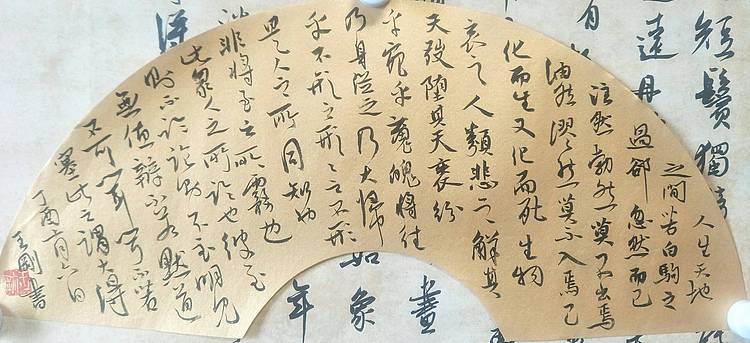 人生天地
之間若白駒之
過郤忽然而已
注然勃然莫不出焉
油然漻然莫不入焉已
化而生又化而死生物
哀之人類悲之解其
天弢堕其天袠紛
乎宛乎魂魄將往
乃身從之乃大歸
乎不形之形形之不形
是人之所同知也
非將至之所務也
此衆人之所論也彼至
則不論論則不至明見
無值辯不若默道
不可聞聞不若
塞此之謂大得
丁酉六日
王剛書
短鬢獨
遠
有
畫
如象
年
得